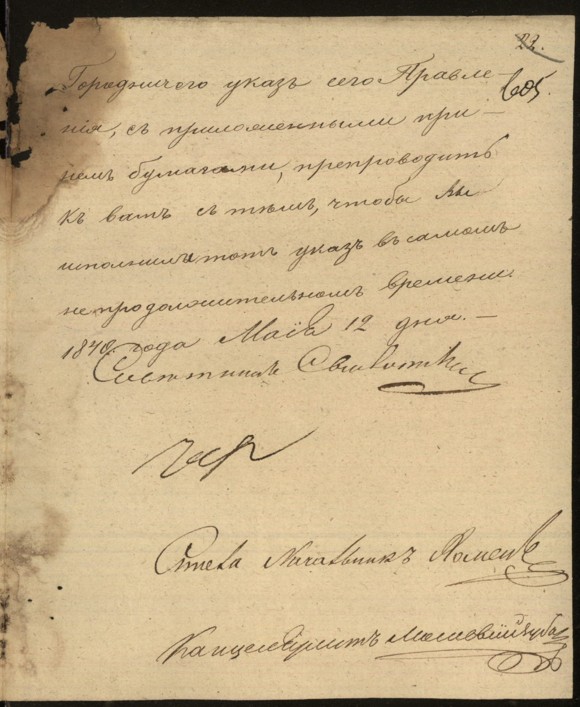 22.
605.
Городничего указъ сего Правле-
нія, съ приложенными при
немъ бумагами, препроводить
къ вамъ съ тѣмъ, чтобы вы
исполнили тотъ указъ въ самомъ
непродолжительномъ времени.
1840 года Маія 12 дня. —
Совѣтникъ
Начальникъ
Канцеляристъ